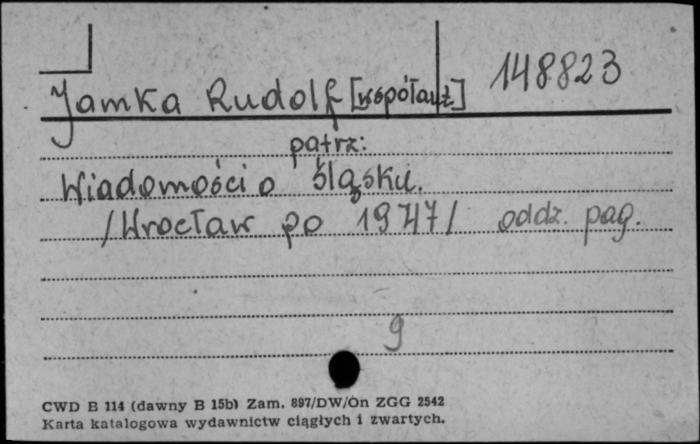 148823
Jamka Rudolf [współaut.]
patrz:
Wiadomości o Śląsku.
/Wrocław po 1947/ oddz. pag.
9
CWD B 114 (dawny B 15b) Zam. 897/DW/On ZGG 2542
Karta katalogowa wydawnictw ciągłych i zwartych.